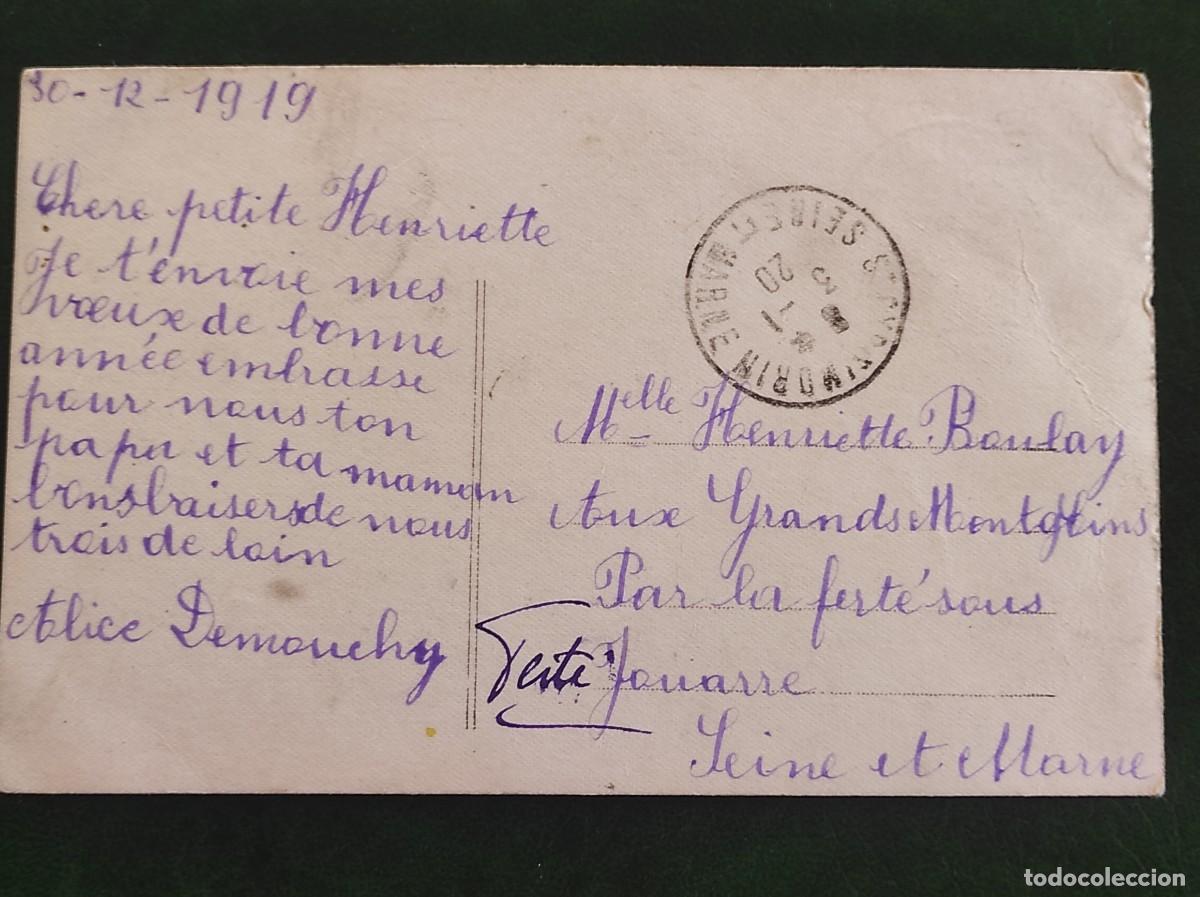 30-12-1919
Chere petite Henriette
Je t'envoie mes
voeux de bonne
année embrasse
pour nous ton
papa et ta maman
bons baisers de nous
trois de loin
Alice Demouchy
SEINE ET MARNE
3
-1
20
Melle Henriette Boulay
Aux Grands Montgoins
Par la ferté sous
Jouarre
Seine et Marne
todocoleccion